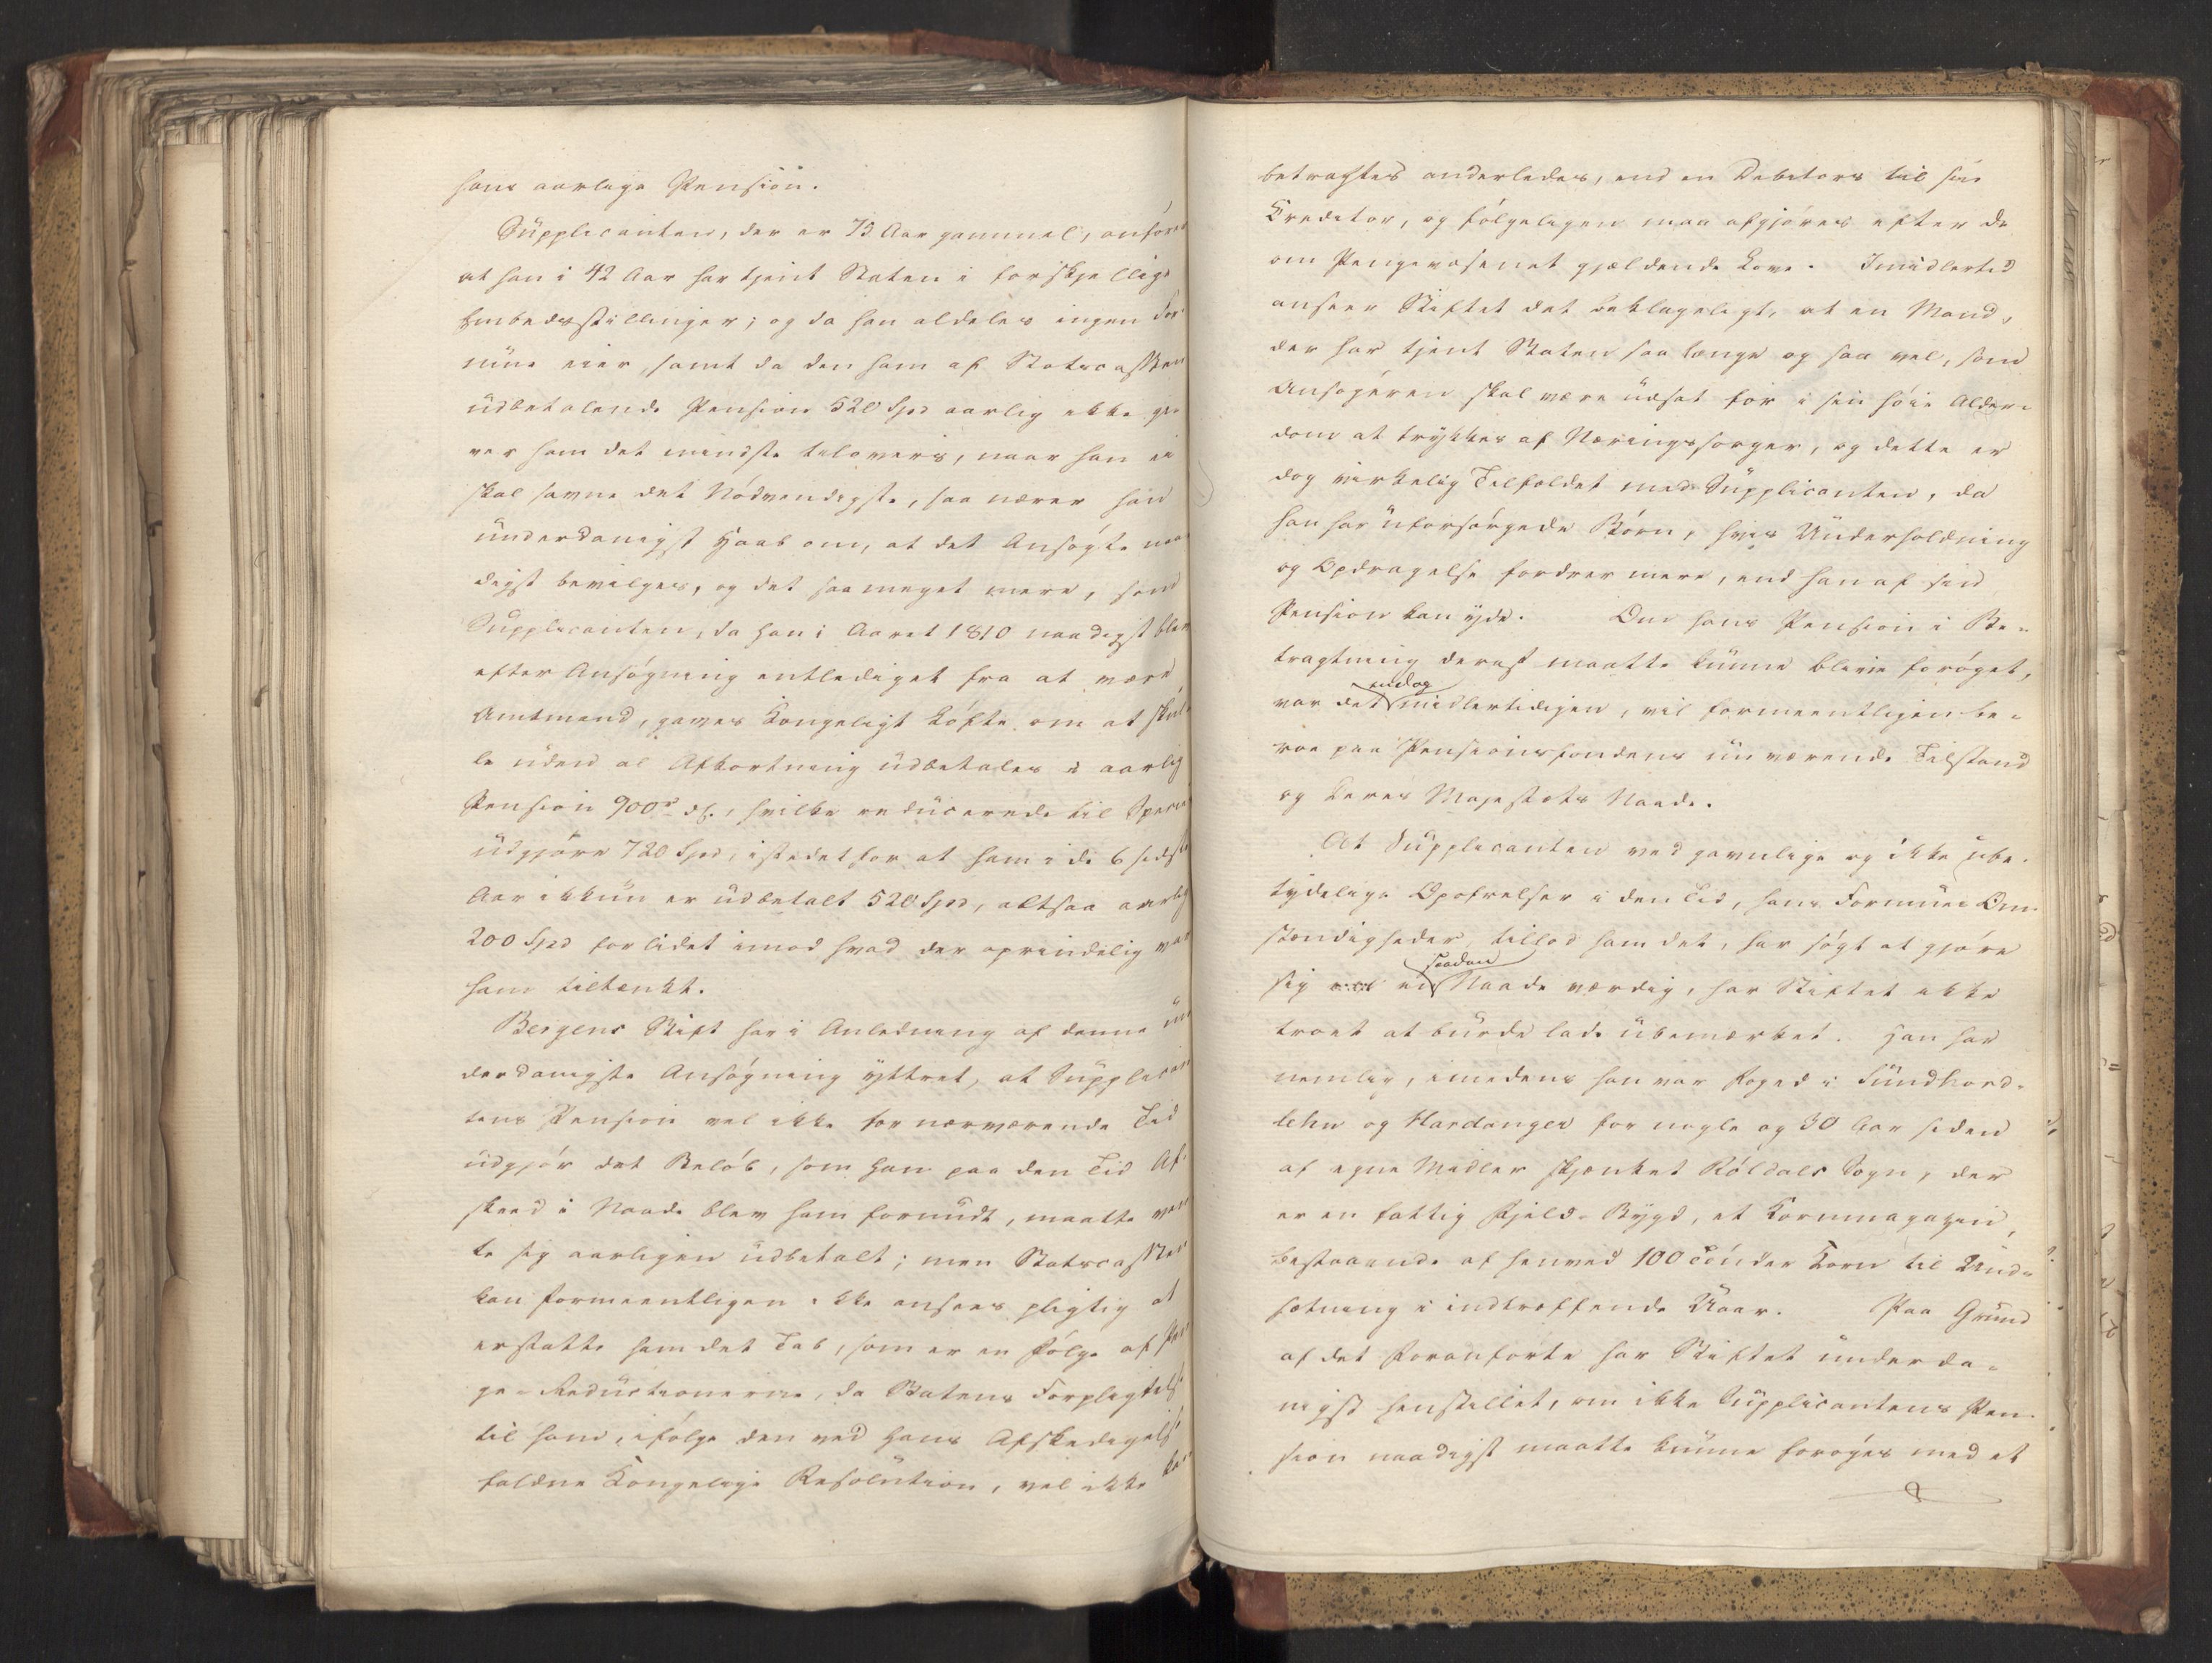 hans aarlige Pension.
Supplicanten, der er 73 Aar gammel, anfører
at han i 42 Aar har tjent Staten i forskjellige
Embedsstillinger; og da han aldeles ingen For¬
mue eier, samt da den ham af Statscassen
udbetalende Pension 520 Spd aarlig ikke gi¬
ver ham det mindste tilovers, naar han ei
skal savne det Nödvendigste, saa nærer han
underdanigst Haab om, at det Ansögte naa
digst bevilges, og det saameget mere, som
Supplicanten, da han i Aaret 1810 naadigst blev
efter Ansögning entlediget fra at være
Amtmand, gaves Kongeligt Löfte om at skul¬
le uden al Afkortning udbetales i aarlig
Pension 900 rd., hvilke reducerede til Specier
udgjöre 720 Spd, istedetfor at ham i de 6 sidste
Aar ikkun er udbetalt 520 Spd, altsaa aarlig
200 Spd for lidet imod hvad der oprindelig var
ham tiltænkt.
Bergens Stift har i Anledning af denne un
derdanigste Ansögning yttret, at Supplican
tens Pension vel ikke for nærværende Tid
udgjör det Belöb, som han paa den Tid Af¬
skeed i Naade blev ham forundt, maatte ven
te sig aarligen udbetalt; men Statscassen
kan formeentligen ikke ansees pligtig at
erstatte ham det Tab, som er en Fölge af Pen
ge-Reductionerne, da Statens Forpligtelse
til ham, ifölge den ved hans Afskedigelse
faldne Kongelige Resolution, vel ikke kan
betragtes anderledes, end en Debitors til sin
Creditor, og fölgeligen maa afgjöres efter de
om Pengevæsenet gjældende Love. Imidlertid
anseer Stiftet det beklageligt, at en Mand,
der har tjent Staten saa længe og saa vel, som
Ansögeren skal være udsat for i sin höie Alder¬
dom at trykkes af Næringssorger, og dette er
dog virkelig Tilfældet med Supplicanten, da
han har uforsörgede Börn, hvis Underholdning
og Opdragelse fordrer mere, end han af sin
Pension kan yde. Om hans Pension i Be¬
tragtning deraf maatte kunne blive foröget,
endog
var det midlertidigen, vil formeentligen be¬
roe paa Pensionsfondens nu værende Tilstand
og Deres Majestæts Naade.
At Supplicanten ved gavnlige og ikke ube¬
tydelige Opofrelser i den Tid, hans Formues Om¬
stændigheder tillod ham det, har sögt at gjöre
saadan
sig en Naade værdig, har Stiftet ikke
troet at burde lade ubemærket. Han har
nemlig, imedens han var Foged i Sundhord¬
lehn og Hardanger for nogle og 30 Aar siden
af egne Midler skjænket Röldals Sogn, der
er en fattig Fjeld-Bygd, et Kornmagazin,
bestaaende af henved 100 Tönder Korn til Und¬
sætning i indtræffende Uaar. Paa Grund
af det Foranförte har Stiftet underda¬
nigst henstillet, om ikke Supplicantens Pen¬
sion naadigst maatte kunne foröges med et